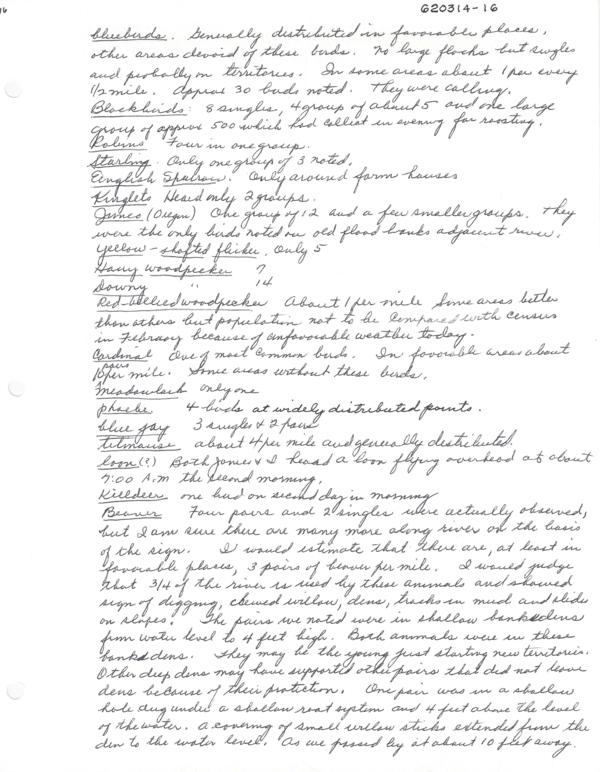 620314-16
16
bluebirds. Generally distributed in favorable places,
other areas devoid of these birds. No large flocks but singles
and probably on territories. In some areas about 1 per every
1/2 mile. Approx 30 birds noted. They were calling.
Blackbirds: 8 singles, 4 group of about 5 and one large
group of approx 500 which had collect in evening for roosting.
Robins Four in one group.
Starling. Only one group of 3 noted.
English Sparrow. Only around farm houses
Kinglets Heard only 2 groups.
Juncos (Oregon) One group of 12 and a few smaller groups. They
were the only birds noted on old flood banks adjacent river.
Yellow-shafted flicker. Only 5
Hairy woodpecker 7
Downy " 14
Red-bellied woodpecker About 1 per mile Some areas better
than others but population not to be compared with census
in February because of unfavorable weather today.
Cardinal One of most common birds. In favorable areas about
10 pairs per mile. Some areas without these birds.
Meadowlark only one
phoebe 4 birds at widely distributed points.
blue jay 3 singles & 2 pairs
titmouse about 4 per mile and generally distributed.
loon (?) Both Jones & I heard a loon flying overhead at about
7:00 A.M the second morning.
Killdeer one bird on second day in morning
Beaver Four pairs and 2 singles were actually observed,
but I am sure there are many more along river on the basis
of the sign. I would estimate that there are, at least in
favorable places, 3 pairs of beaver per mile. I would judge
that 3/4 of the river is used by these animals and showed
sign of digging, chewed willow, dens, tracks in mud and slides
on slopes. The pairs we noted were in shallow bank dens
from water level to 4 feet high. Both animals were in these
bank dens. They may be the young just starting new territories.
Other deep dens may have supported other pairs that did not leave
dens because of their protection. One pair was in a shallow
hole dug under a shallow root system and 4 feet above the level
of the water. A covering of small willow sticks extended from the
den to the water level. As we passed by at about 10 feet away.